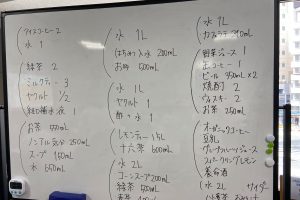 アイスコーヒー 2
水 1
緑茶 2
ミルクティー 3
ヤクルト 1/2
経口補水液 1
お茶 550mL
ノンアル気分 250mL
スープ 150mL
水 650mL
水 1L
はちみつ入水 200mL
お茶 500mL
水 1L
ヤクルト 1
酢 水 1
レモンティー 1.5L
十六茶 600mL
水 2L
コーンスープ 200mL
緑茶 500mL
水 1L
カフェラテ 240mL
野菜ジュース 1
缶コーヒー 1
ビール 350mL×2
焼酎 2
ウィスキー 2
お茶 250mL
オーガニックコーヒー
豆乳
グレープフルーツジュース
スパークリングレモン
養命酒
水 2L サイダー